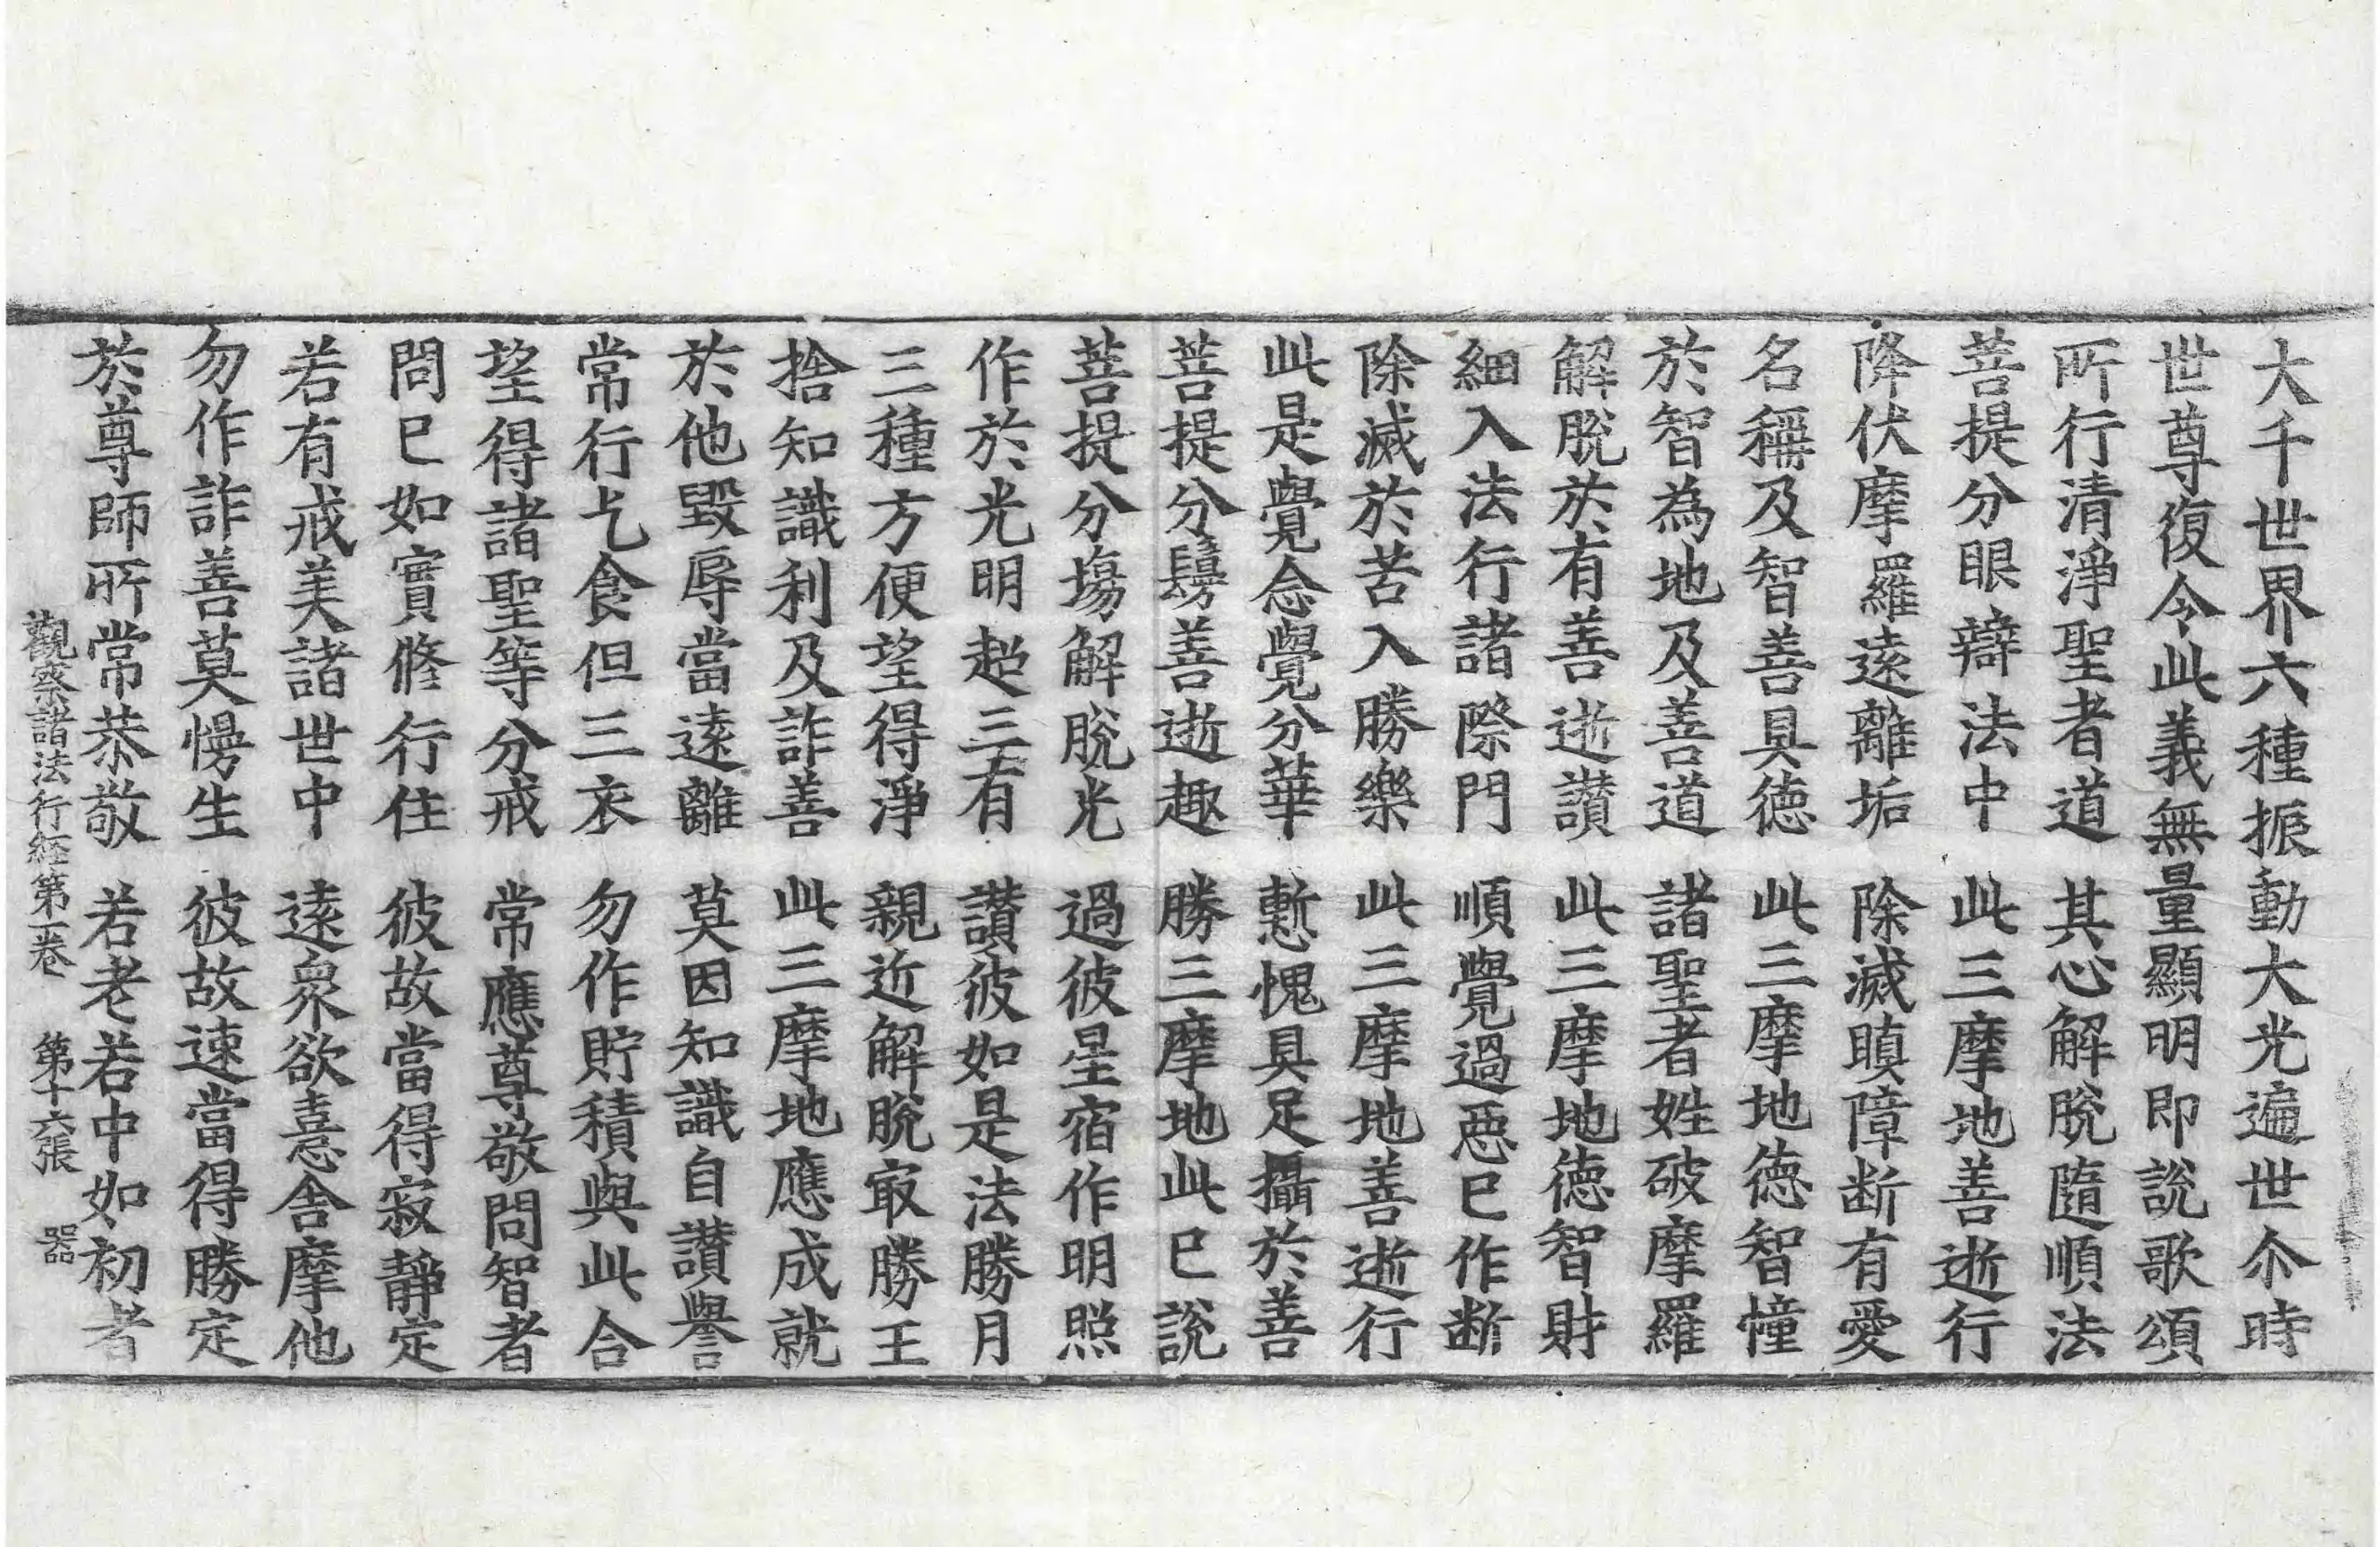 大千世界六種振動大光遍世尒時
世尊復令此義無量顯明即說歌頌
所行清淨聖者道　其心解脫隨順法
菩提分眼辯法中　此三摩地善逝行
降伏摩羅遠離垢　除滅瞋障断有愛
名稱及智善具德　此三摩地德智憧
於智為地及善道　諸聖者姓破摩羅
解脫於有善逝讃　此三摩地德智財
細入法行諸際門　順覺過惡已作断
除滅於苦入勝樂　此三摩地善逝行
此是覺念覺分華　慙愧具足攝於善
菩提分鬘善逝趣　勝三摩地此已說
菩提分塲解脫光　過彼星宿作明照
作於光明超三有　讃彼如是法勝月
三種方便望得淨　親近解脫㝡勝王
捨知識利及詐善　此三摩地應成就
於他毀辱當遠離　莫因知識自讃譽
常行乞食但三衣　勿作貯積與此合
望得諸聖等分戒　常應尊敬問智者
問已如實脩行住　彼故當得寂靜定
若有戒美諸世中　遠衆欲憙舍摩他
勿作詐善莫慢生　彼故速當得勝定
於尊師所常恭敬　若老若中如初者
觀察諸法行經第一卷　第十六張　器